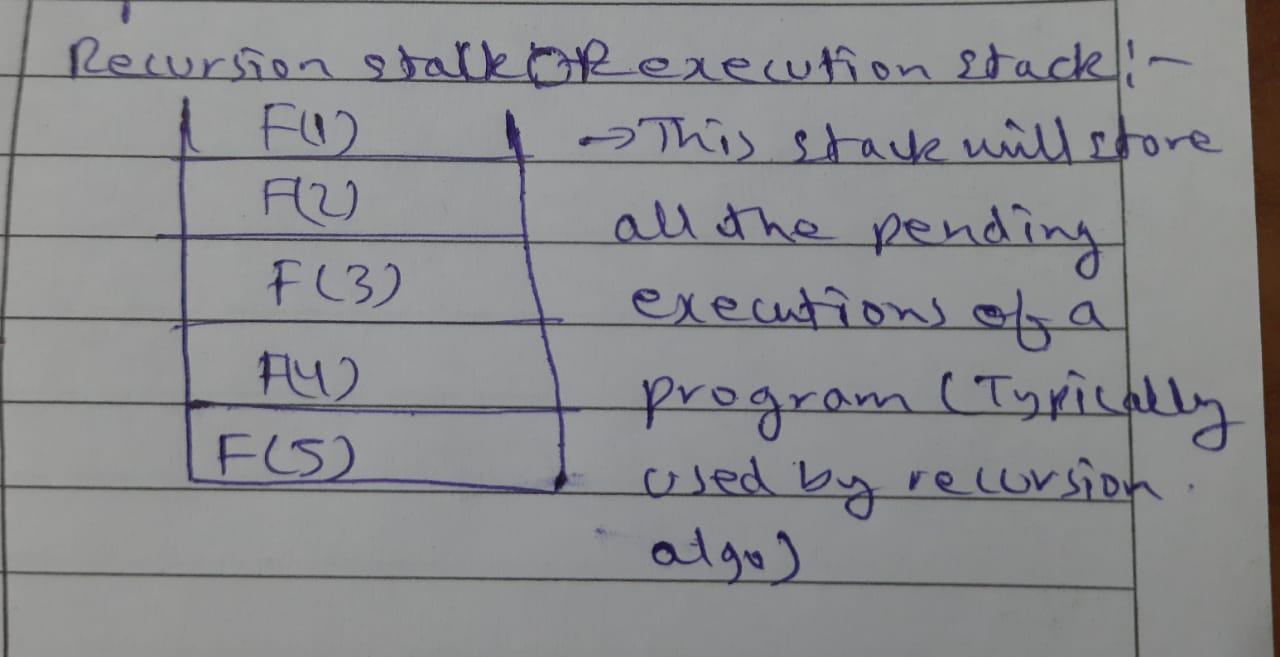 Recursion stack OR execution stack:-
F(1)
F(2)
F(3)
F(4)
F(5)
→ This stack will store
all the pending
executions of a
program (Typically
used by recursion.
algo)